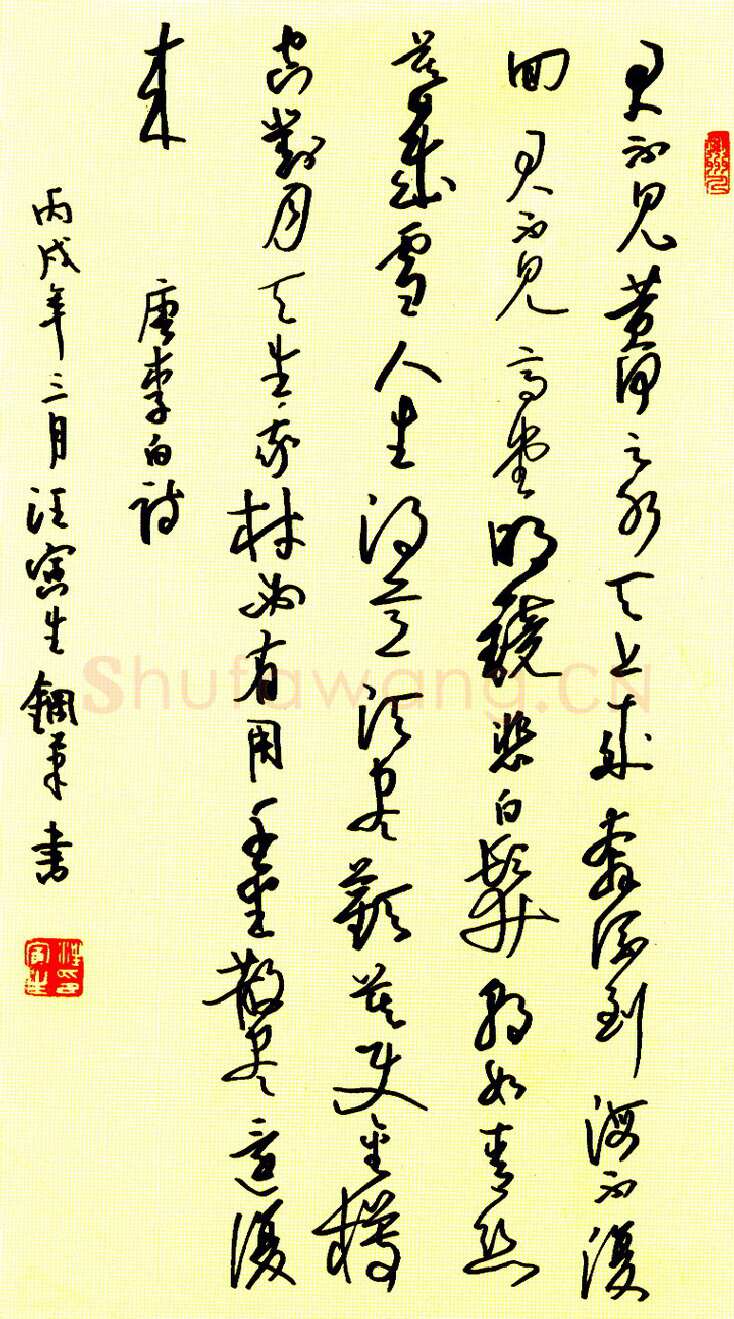 君不見黄河之水天上来奔流到海不復
回君不見高堂明鏡悲白髮朝如青丝
暮成雪人生得意须尽歡莫使金樽
空對月天生我材必有用千金散尽還復
来 唐李白诗
丙戌年三月汪寅生鋼筆書
汪寅生印
Shufawang.CN